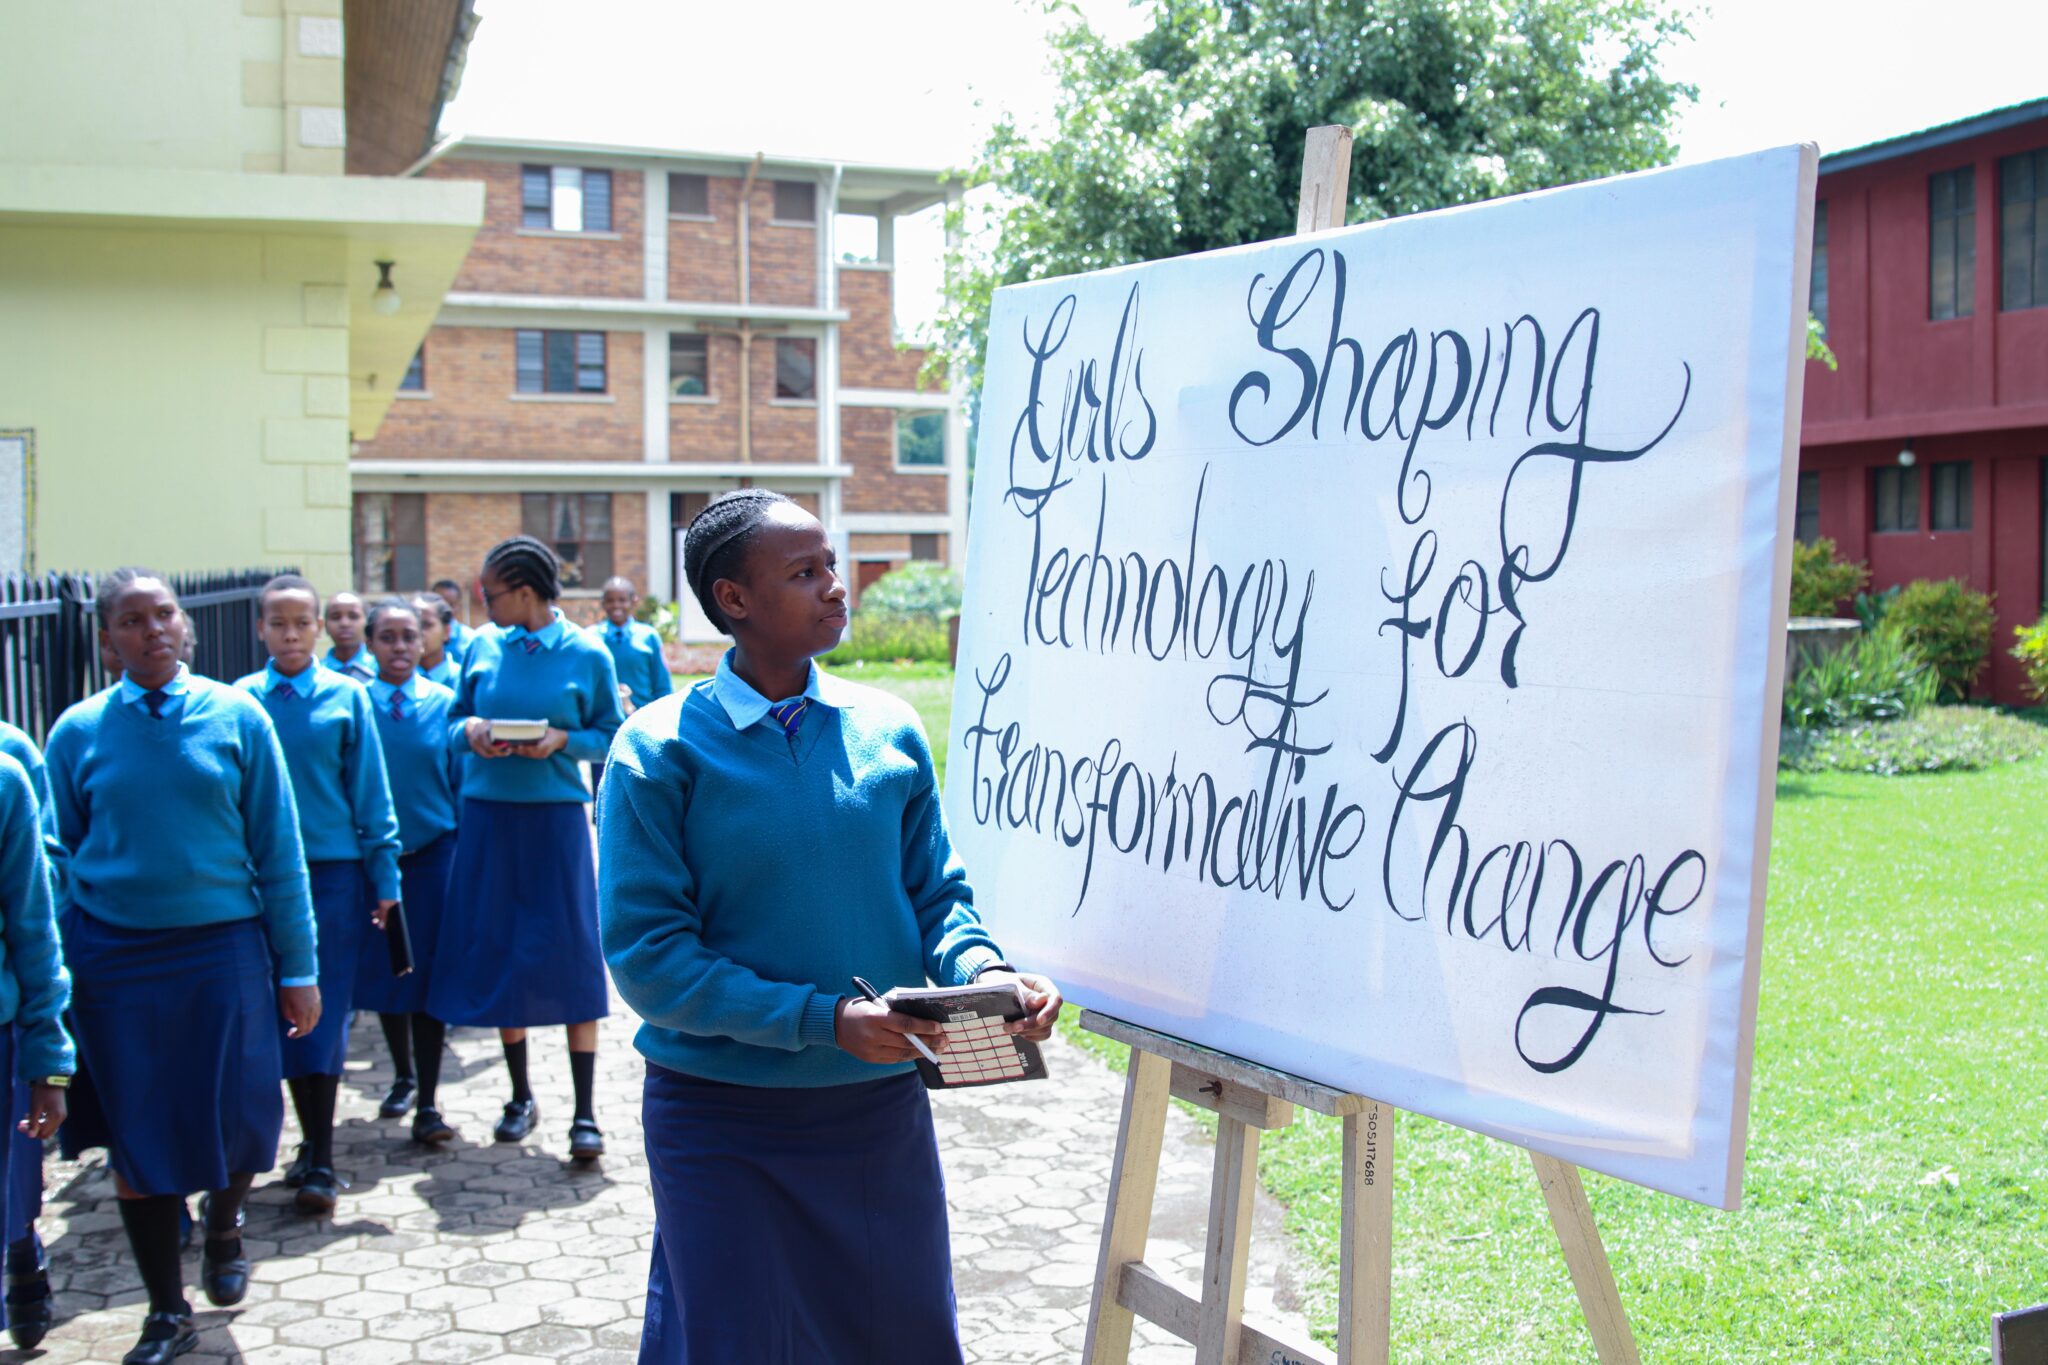 Girls Shaping
Technology for
transformative Change
2018
TSOSJ17688